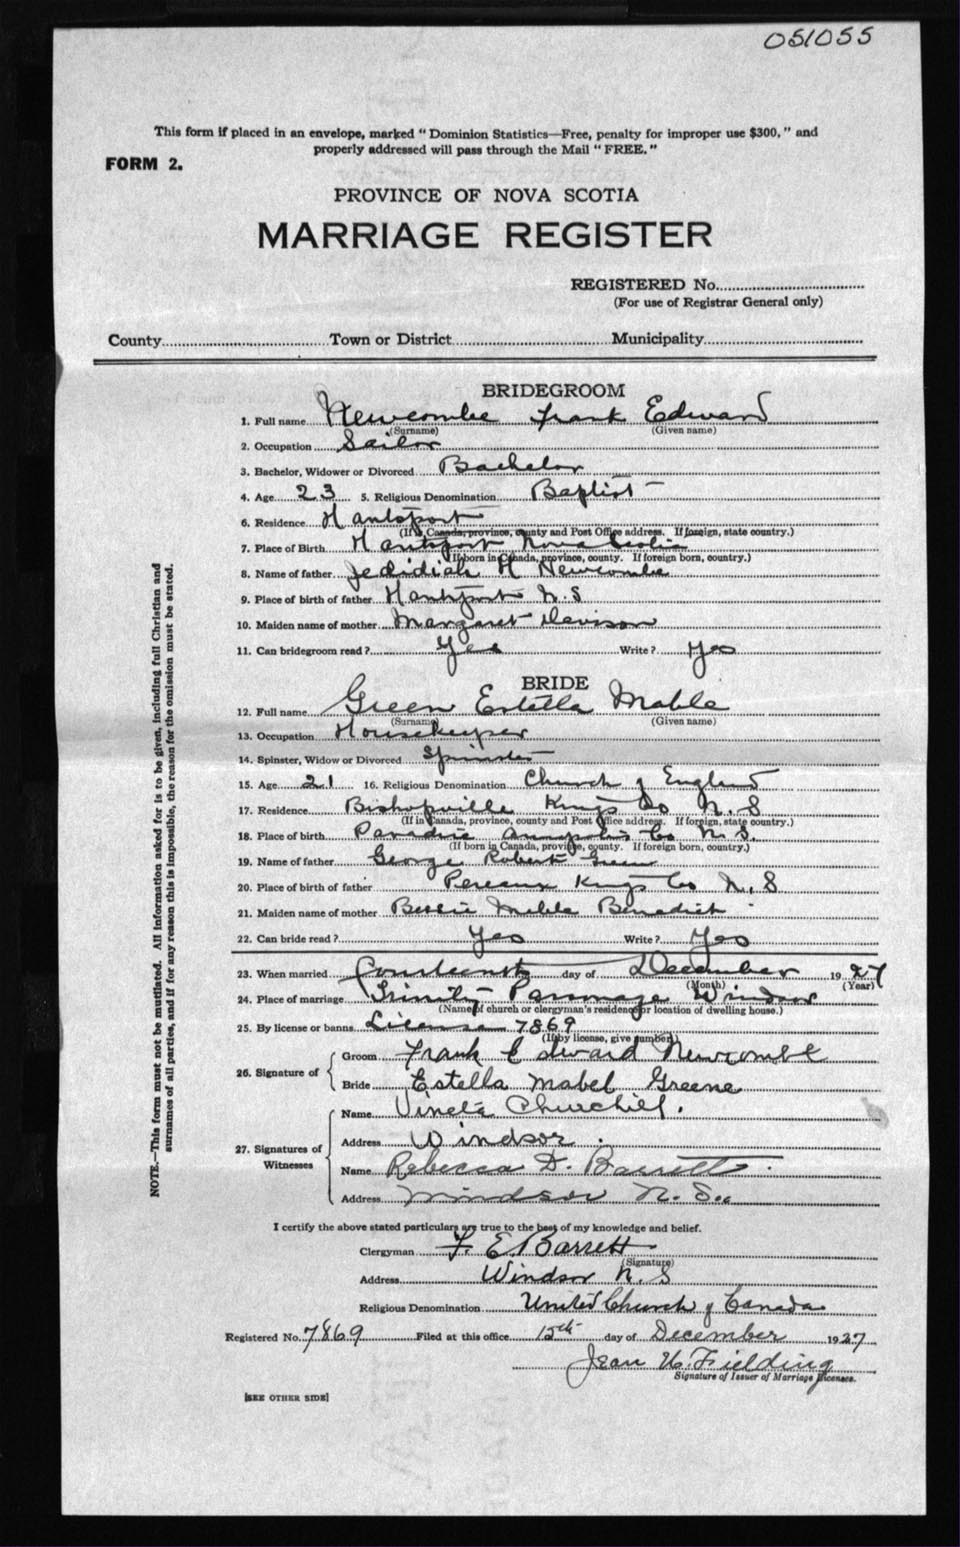 051055
This form if placed in an envelope, marked "Dominion Statistics—Free, penalty for improper use $300," and
properly addressed will pass through the Mail "FREE."
FORM 2.
PROVINCE OF NOVA SCOTIA
MARRIAGE REGISTER
REGISTERED No.
(For use of Registrar General only)
County Town or District Municipality
BRIDEGROOM
1. Full name Newcombe Frank Edward
(Surname) (Given name)
2. Occupation Sailor
3. Bachelor, Widower or Divorced Bachelor
4. Age 23 5. Religious Denomination Baptist
6. Residence Hantsport
(If in Canada, province, county and Post Office address. If foreign, state country.)
7. Place of Birth Hantsport Nova Scotia
(If born in Canada, province, county. If foreign born, country.)
8. Name of father Jedidiah H Newcombe
9. Place of birth of father Hantsport N.S
10. Maiden name of mother Margaret Davison
11. Can bridegroom read? Yes Write? Yes
BRIDE
12. Full name Green Estella Mable
(Surname) (Given name)
13. Occupation Housekeeper
14. Spinster, Widow or Divorced Spinster
15. Age 21 16. Religious Denomination Church of England
17. Residence Bishopville Kings Co N.S
(If in Canada, province, county and Post Office address. If foreign, state country.)
18. Place of birth Paradise Annapolis Co N.S.
(If born in Canada, province, county. If foreign born, country.)
19. Name of father George Robert Green
20. Place of birth of father Pereaux Kings Co N.S
21. Maiden name of mother Bessie Mable Benedict
22. Can bride read? Yes Write? Yes
23. When married Fourteenth day of December 1927
(Month) (Year)
24. Place of marriage Trinity Parsonage Windsor
(Name of church or clergyman's residence or location of dwelling house.)
25. By license or banns License 7869
(If by license, give number)
26. Signature of
Groom Frank Edward Newcombe
Bride Estella Mabel Greene
27. Signatures of Witnesses
Name Vineta Churchill.
Address Windsor.
Name Rebecca D. Barrett.
Address Windsor N.S.
I certify the above stated particulars are true to the best of my knowledge and belief.
Clergyman F. E. Barrett
(Signature)
Address Windsor N.S
Religious Denomination United Church of Canada
Registered No. 7869 Filed at this office 15th day of December 1927
Jean Fielding
Signature of Issuer of Marriage Licenses.
[SEE OTHER SIDE]
NOTE.—This form must not be mutilated. All information asked for is to be given, including full Christian and
surnames of all parties, and if for any reason this is impossible, the reason for the omission must be stated.